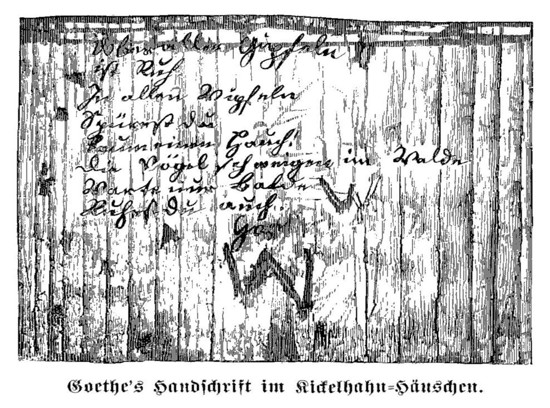 Über allen Gipfeln
ist Ruh
In allen Wipfeln
Spürest du
Kaum einen Hauch!
Die Vögel schweigen im Walde
Warte nur Balde
Ruhest du auch.
W
Goethe's Handschrift im Kickelhahn=Häuschen.